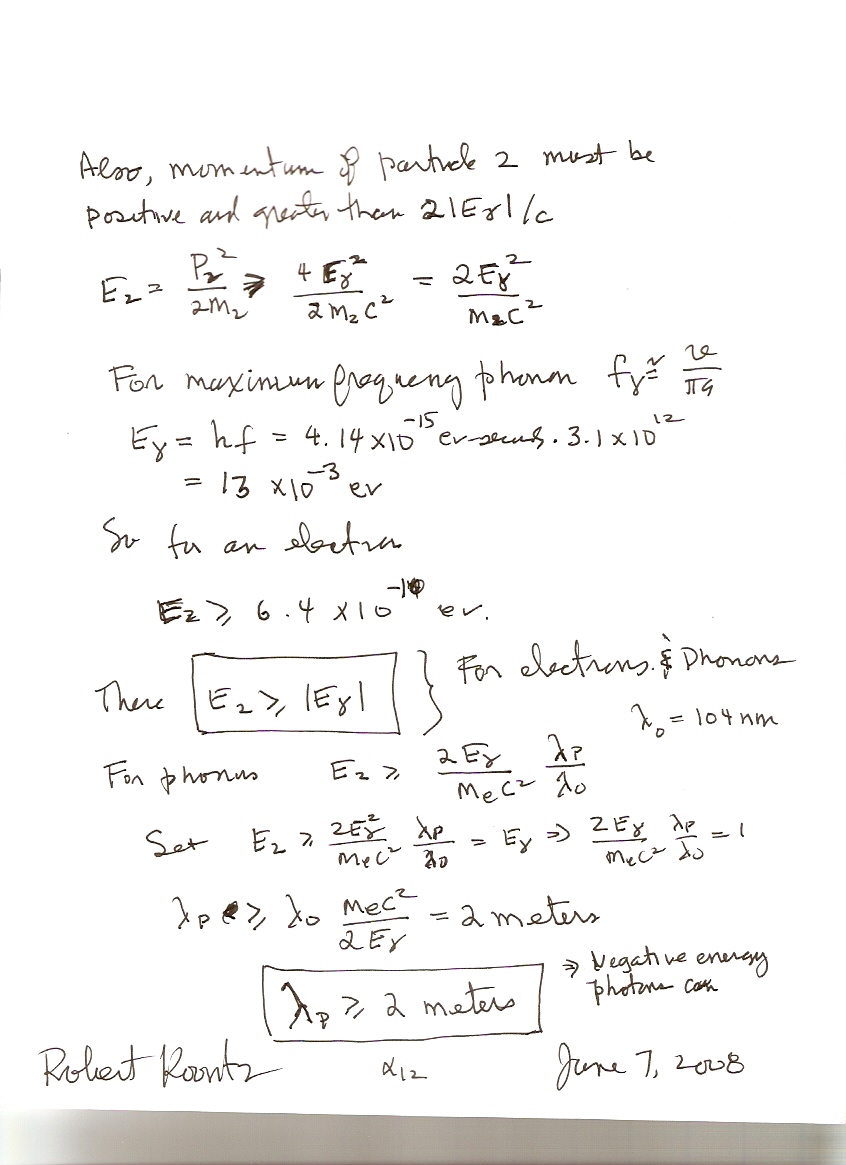 Also, momentum of particle 2 must be
positive and greater than 2|Eγ|/c
E₂ = P₂²/2M₂ ≥ 4Eγ²/2M₂C² = 2Eγ²/M₂C²
For maximum frequency phonon fγ ≅ v/πa
Eγ = hf = 4.14 x10⁻¹⁵ ev-seconds · 3.1 x 10¹²
= 13 x10⁻³ ev
So for an electron
E₂ ≥ 6.4 x10⁻¹⁰ ev.
There E₂ ≥ |Eγ| } For electrons & Phonons
λ₀ = 104 nm
For phonons E₂ ≥ 2Eγ/MeC² λP/λ₀
Set E₂ ≥ 2Eγ²/MeC² λP/λ₀ = Eγ ⇒ 2Eγ/MeC² λP/λ₀ = 1
λP ≥ λ₀ MeC²/2Eγ = 2 meters
λP ≥ 2 meters ⇒ Negative energy
photons can
Robert Koontz α12 June 7, 2008